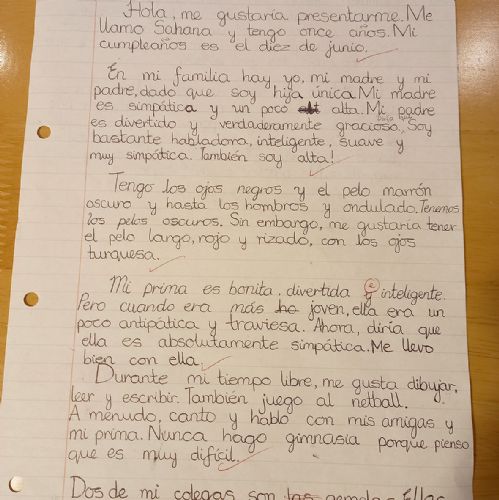 Hola, me gustaría presentarme. Me
llamo Sahana y tengo once años. Mi
cumpleaños es el diez de junio.
En mi familia hay yo, mi madre y mi
padre, dado que soy hija única. Mi madre
es simpática y un poco alta. Mi padre
es divertido y verdaderamente gracioso. Soy
bastante habladora, inteligente, suave y
muy simpática. También soy alta!
Tengo los ojos negros y el pelo marrón
oscuro y hasta los hombros y ondulado. Tenemos
los pelos oscuros. Sin embargo, me gustaría tener
el pelo largo, rojo y rizado, con los ojos
turquesa.
Mi prima es bonita, divertida y e inteligente.
Pero cuando era más joven, ella era un
poco antipática y traviesa. Ahora, diría que
ella es absolutamente simpática. Me llevo
bien con ella.
Durante mi tiempo libre, me gusta dibujar,
leer y escribir. También juego al netball.
A menudo, canto y hablo con mis amigas y
mi prima. Nunca hago gimnasia porque pienso
que es muy difícil.
Dos de mi colegas son las gemelas. Ellas